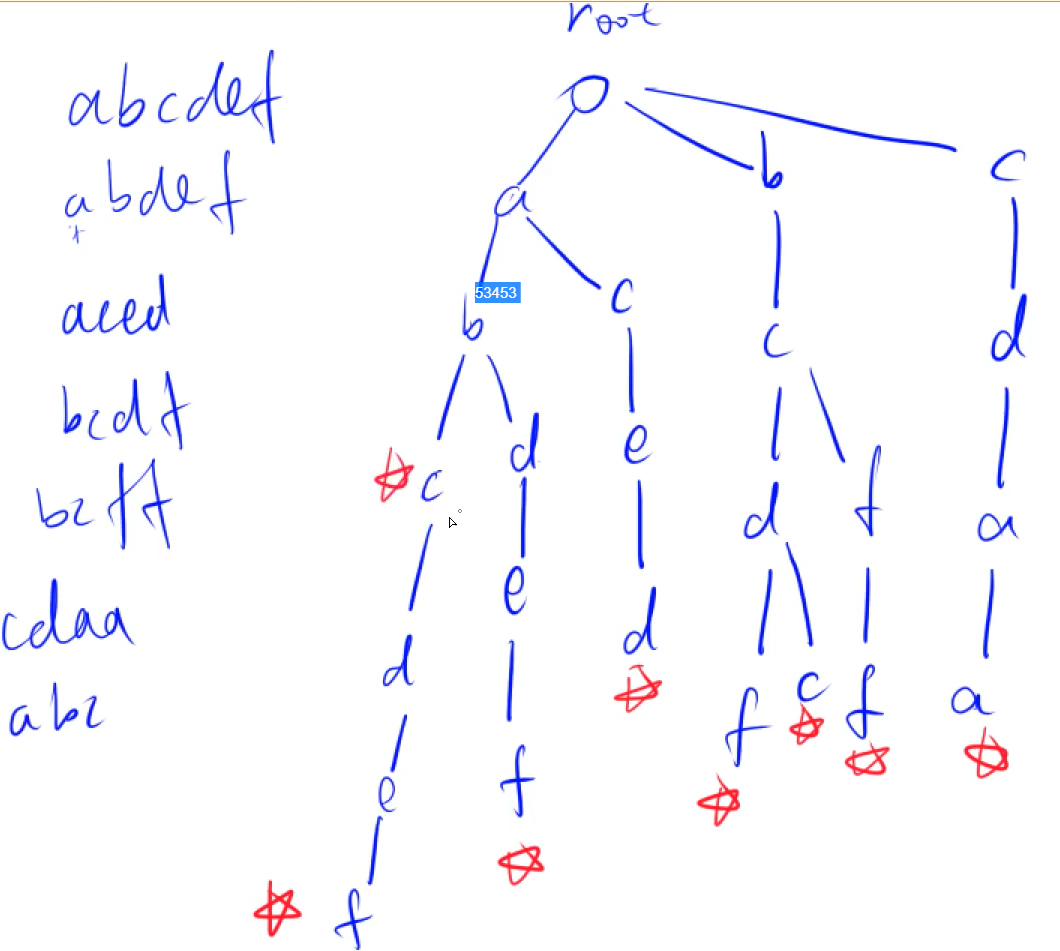 root
abcdef
abdef
aced
bcdf
bcff
cdaa
abc
a b c
b c c d
53453
c d e c
d f a
e d d
d c f a
e f f
f